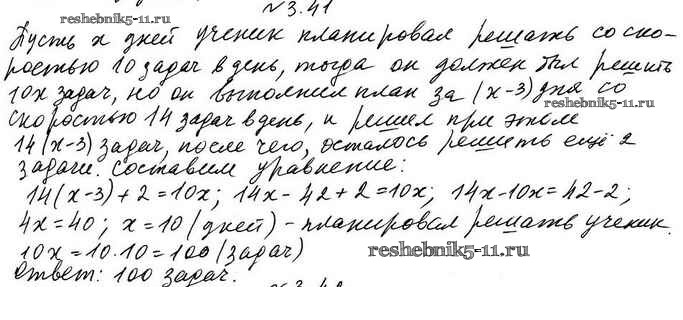 №3.41
reshebnik5-11.ru
Пусть x дней ученик планировал решать со ско-
ростью 10 задач в день, тогда он должен был решить
10x задач, но он выполнил план за (x-3) дня со
reshebnik5-11.ru
скоростью 14 задач в день, и решил при этом
14(x-3) задач, после чего, осталось решить ещё 2
задачи. Составим уравнение:
14(x-3)+2=10x; 14x-42+2=10x; 14x-10x=42-2;
4x=40; x=10 (дней) - планировал решать ученик.
10x=10·10=100 (задач)
reshebnik5-11.ru
Ответ: 100 задач.